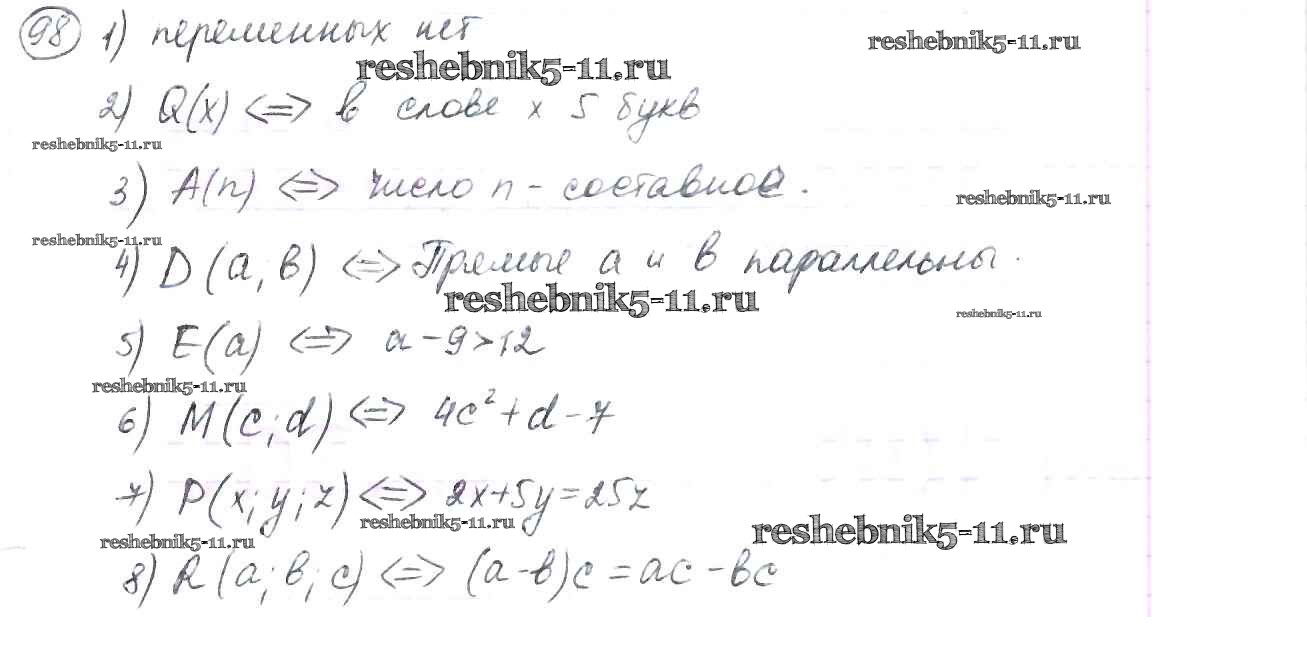 98 1) переменных нет
reshebnik5-11.ru
reshebnik5-11.ru
2) Q(x) <=> в слове x 5 букв
reshebnik5-11.ru
3) A(n) <=> число n - составное.
reshebnik5-11.ru
reshebnik5-11.ru
4) D (a; b) <=> Прямые a и b параллельны.
reshebnik5-11.ru
reshebnik5-11.ru
5) E(a) <=> a - 9 > 12
reshebnik5-11.ru
6) M(c; d) <=> 4c² + d - 7
7) P(x; y; z) <=> 2x+5y=25z
reshebnik5-11.ru
reshebnik5-11.ru
reshebnik5-11.ru
8) R (a; b; c) <=> (a-b)c = ac - bc